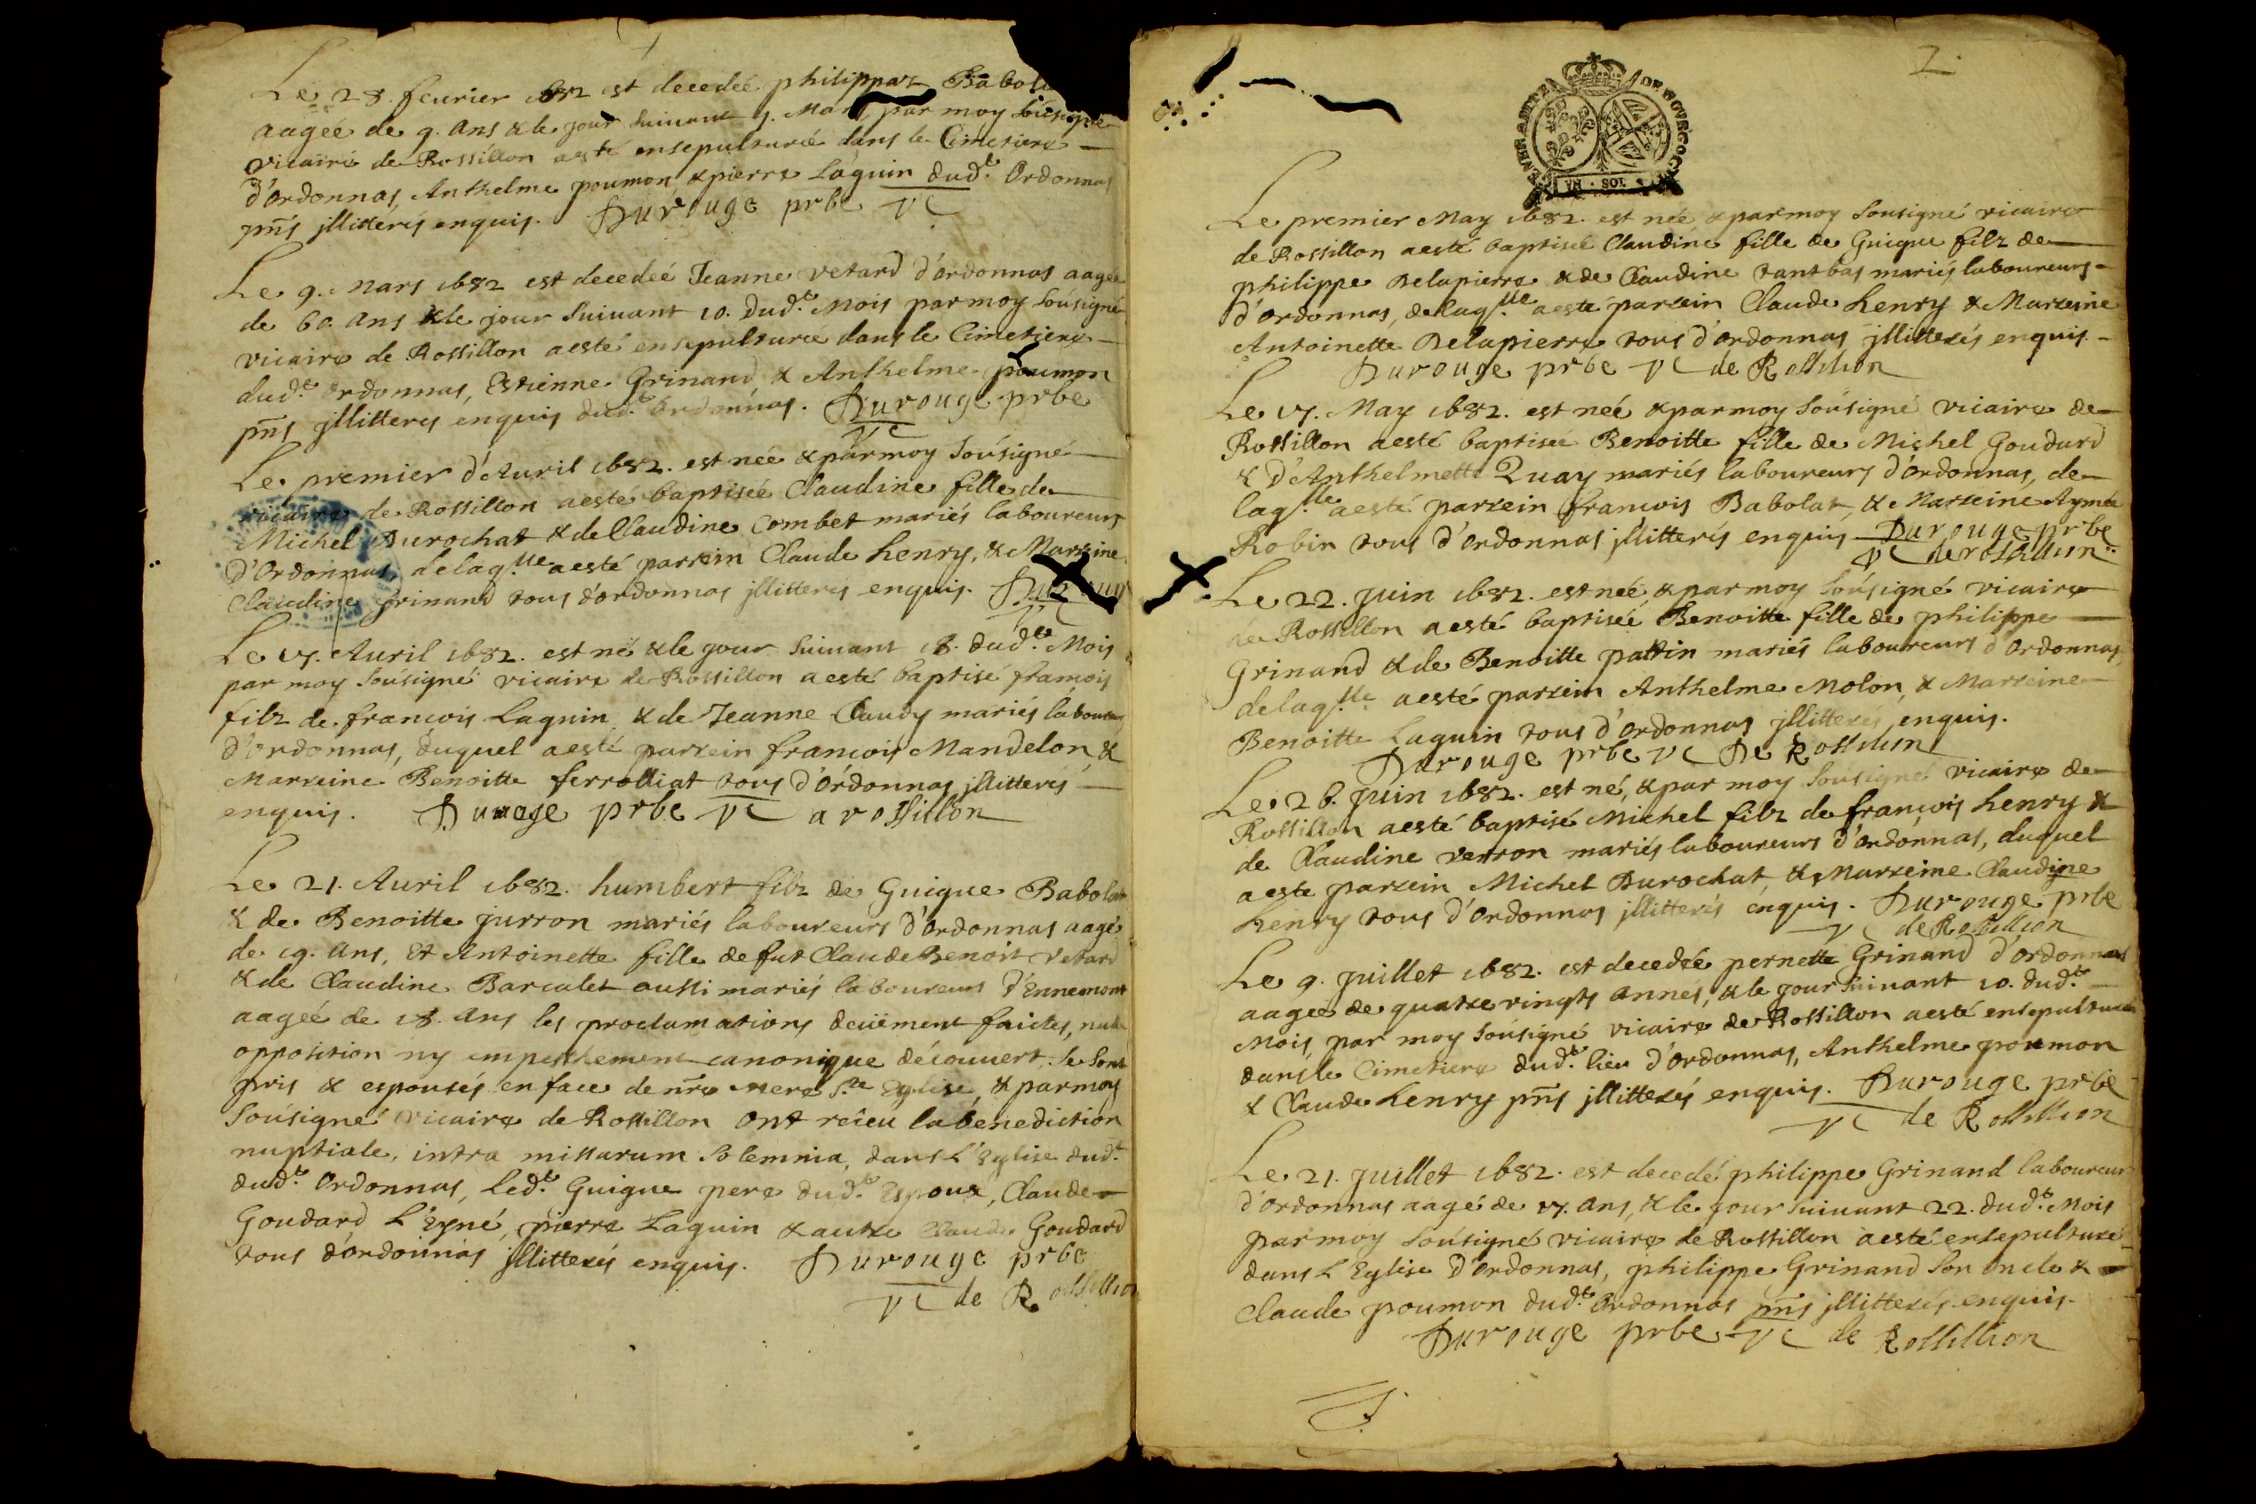 Le 28. feurier 1682 est decedée philippaz Babol
aagée de 9. ans & le jour suiuant 1. Mars par moy sousigné
vicaire de Rossillon a esté ensepulturée dans le Cimetiere
d'Ordonnas, Anthelme poumon, & pierre Laguin dud.t Ordonnas
pñts jllitterés enquis. Durouge prbe vic
Le 9. Mars 1682 est decedeé Jeanne vetard d'ordonnas aagée
de 60. ans & le jour suiuant 10. dud.t Mois par moy sousigné
vicaire de Rossillon a esté ensepulturée dans le Cimetiere
dud.t ordonnas, Estienne Grinand, & Anthelme poumon
pñts jllitterés enquis dud.t Ordonnas. Durouge prbe
vic
Le premier d'Auril 1682. est neé & par moy sousigné
vicaire de Rossillon a esté baptisée Claudine fille de
Michel Durochat & de Claudine Combet mariés laboureurs
d'Ordonnas, de laq.lle a esté parrein Claude henry, & Marreine
Claudine grinand tous d'ordonnas jllitterés enquis.
vic
Le 17. Auril 1682. est né & le jour suiuant 18. dud.t Mois
par moy sousigné vicaire de Rossillon a esté baptisé francois
filz de francois Laguin, & de Jeanne Claudy mariés laboureurs
d'ordonnas, duquel a esté parrein francois Mandelon, &
Marreine Benoitte ferrolliat tous d'Ordonnas jllitterés
enquis. Durouge prbe vic a rossillon
Le 21. Auril 1682. humbert filz de Guigue Babolat
& de Benoitte jurron mariés laboureurs d'ordonnas aagé
de 19. ans, Et Antoinette fille de fut Claude Benoit vetard
& de Claudine Barculet aussi mariés laboureurs d'Ennemont
aagée de 18. ans les proclamations deüement faictes, nulle
opposition ny empeschement canonique découuert, se sont
pris & espousés en face de nr̃e mere S.te Eglise, & par moy
sousigné vicaire de Rossillon ont receu la benediction
nuptiale, intra missarum solemnia, dans L'Eglise dud.t
dud.t Ordonnas, led.t Guigue pere dud.t Espoux, Claude
Goudard L'Eyné, pierre Laguin & autre Claude Goudard
tous d'ordonnas jllitterés enquis. Durouge prbe
vic de Rossillion
2.
GENERALITE DE BOVRGOGNE
SOLS
Le premier May 1682. est neé & par moy sousigné vicaire
de Rossillon a esté baptisée Claudine fille de Guigue filz de
philippe Delapierre & de Claudine tantbas mariés laboureurs
d'ordonnas, de laq.lle a esté parrein Claude henry & Marreine
Antoinette Delapierre tous d'ordonnas jllitterés enquis.
Durouge prbe vic de Rossillion
Le 17. May 1682. est neé & par moy sousigné vicaire de
Rossillon a esté baptiseé Benoitte fille de Michel Goudard
& d'Anthelmette Quay mariés laboureurs d'ordonnas, de
laq.lle a esté parrein francois Babolat, & Marreine Aymée
Robin tous d'ordonnas jllitterés enquis. Durouge prbe
vic de rossillion
Le 22. juin 1682. est neé & par moy sousigné vicaire
de Rossillon a esté baptisée Benoitte fille de philippe
Grinand & de Benoitte pattin mariés laboureurs d'Ordonnas,
de laq.lle a esté parrein Anthelme Molon, & Marreine
Benoitte Laguin tous d'Ordonnas jllitterés enquis.
Durouge prbe vic De Rossillion
Le 26. juin 1682. est né, & par moy sousigné vicaire de
Rossillon a esté baptisé Michel filz de francois henry &
de Claudine verron mariés laboureurs d'Ordonnas, duquel
a esté parrein Michel Durochat, & Marreine Claudine
henry tous d'Ordonnas jllitterés enquis. Durouge prbe
vic de Rossillion
Le 9. juillet 1682. est decedée pernette Grinand d'Ordonnas
aageé de quatre vingts annés, & le jour suiuant 10. dud.t
Mois, par moy sousigné vicaire de Rossillon a esté ensepulturée
dans le Cimetiere dud.t lieu d'Ordonnas, Anthelme poumon
& Claude henry pñts jllitterés enquis. Durouge prbe
vic de Rossillion
Le 21. juillet 1682. est decedé philippe Grinand laboureur
d'ordonnas aagé de 17. ans, & le jour suiuant 22. dud.t Mois
par moy sousigné vicaire de Rossillon a esté ensepulturé
dans L'Eglise d'Ordonnas, philippe Grinand son oncle &
Claude poumon dud.t Ordonnas pñts jllitterés enquis.
Durouge prbe vic de Rossillion